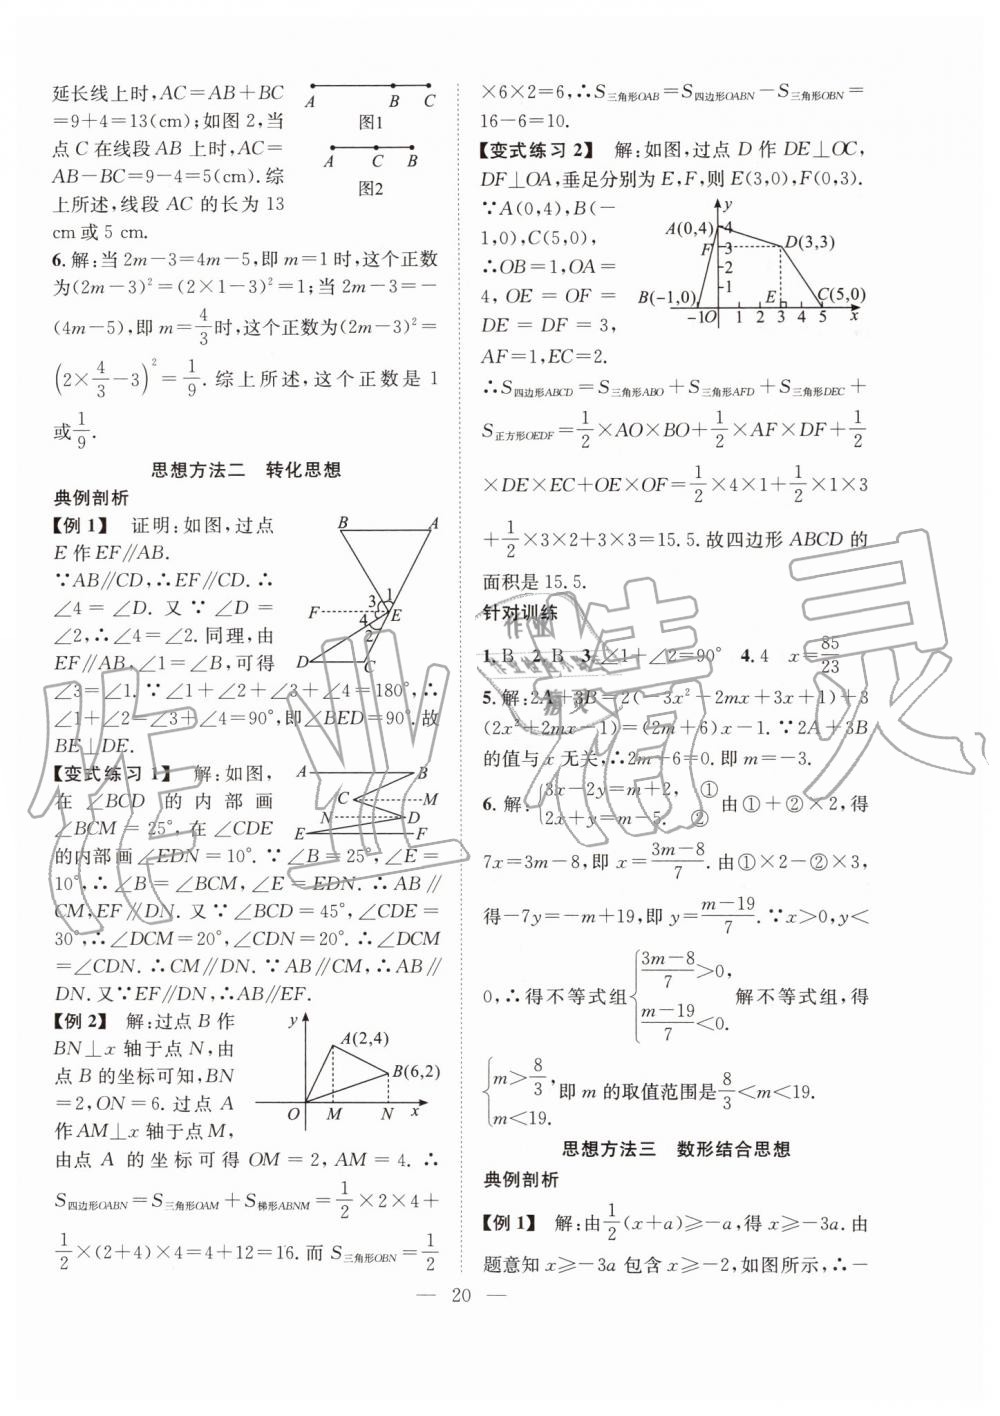 延长线上时,AC=AB+BC
=9+4=13(cm);如图 2,当
点 C 在线段 AB 上时,AC=
AB-BC=9-4=5(cm).综
上所述,线段 AC 的长为 13
cm 或 5 cm.
A B C
图1
A C B
图2
6.解:当 2m-3=4m-5,即 m=1 时,这个正数
为(2m-3)²=(2×1-3)²=1;当 2m-3=-
(4m-5),即 m=4/3时,这个正数为(2m-3)²=
(2×4/3-3)²=1/9.综上所述,这个正数是 1
或1/9.
思想方法二 转化思想
典例剖析
【例 1】 证明:如图,过点
E 作EF∥AB.
∵AB∥CD,∴EF∥CD.∴
∠4=∠D.又∵∠D=
∠2,∴∠4=∠2.同理,由
EF∥AB,∠1=∠B,可得
∠3=∠1.∵∠1+∠2+∠3+∠4=180°,∴
∠1+∠2=∠3+∠4=90°,即∠BED=90°.故
BE⊥DE.
B A
3 1
F E
4
2
D C
【变式练习 1】 解:如图,
在 ∠BCD 的内部画
∠BCM=25°,在∠CDE
的内部画∠EDN=10°.∵∠B=25°,∠E=
10°,∴∠B=∠BCM,∠E=∠EDN.∴AB∥
CM,EF∥DN.又∵∠BCD=45°,∠CDE=
30°,∴∠DCM=20°,∠CDN=20°.∴∠DCM
=∠CDN.∴CM∥DN.∵AB∥CM,∴AB∥
DN.又∵EF∥DN,∴AB∥EF.
A B
C M
N D
E F
【例 2】 解:过点 B 作
BN⊥x 轴于点 N,由
点 B 的坐标可知,BN
=2,ON=6.过点 A
作AM⊥x 轴于点M,
由点 A 的坐标可得 OM=2,AM=4.∴
S四边形OABN=S三角形OAM+S梯形ABNM=1/2×2×4+
1/2×(2+4)×4=4+12=16.而 S三角形OBN=1/2
y
A(2,4)
B(6,2)
O M N x
×6×2=6,∴S三角形OAB=S四边形OABN-S三角形OBN=
16-6=10.
【变式练习 2】 解:如图,过点 D 作 DE⊥OC,
DF⊥OA,垂足分别为 E,F,则 E(3,0),F(0,3).
∵A(0,4),B(-
1,0),C(5,0),
∴OB=1,OA=
4,OE=OF=
DE=DF=3,
AF=1,EC=2.
y
A(0,4) 4
F 3 D(3,3)
2
1
B(-1,0) E C(5,0)
-1O 1 2 3 4 5 x
∴S四边形ABCD=S三角形ABO+S三角形AFD+S三角形DEC+
S正方形OEDF=1/2×AO×BO+1/2×AF×DF+1/2
×DE×EC+OE×OF=1/2×4×1+1/2×1×3
+1/2×3×2+3×3=15.5.故四边形 ABCD 的
面积是 15.5.
针对训练
1.B 2.B 3.∠1+∠2=90° 4.4 x=85/23
5.解:2A+3B=2(-3x²-2mx+3x+1)+3
(2x²+2mx-1)=(2m+6)x-1.∵2A+3B
的值与 x 无关,∴2m+6=0.即 m=-3.
6.解:{3x-2y=m+2, ①
2x+y=m-5. ② 由①+②×2,得
7x=3m-8,即 x=(3m-8)/7.由①×2-②×3,
得-7y=-m+19,即 y=(m-19)/7.∵x>0,y<
0,∴得不等式组{(3m-8)/7>0,
(m-19)/7<0. 解不等式组,得
{m>8/3,
m<19. 即 m 的取值范围是8/3<m<19.
思想方法三 数形结合思想
典例剖析
【例 1】 解:由1/2(x+a)≥-a,得 x≥-3a.由
题意知 x≥-3a 包含 x≥-2,如图所示,∴-
— 20 —
作业精灵